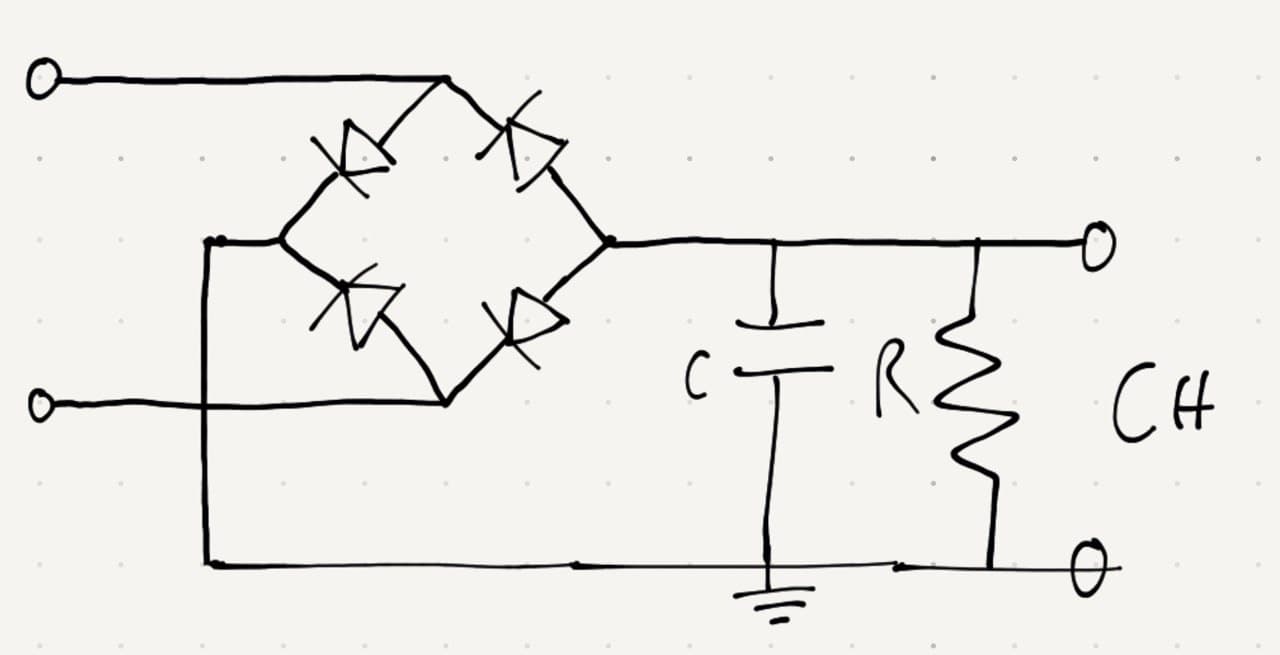 C
R
CH